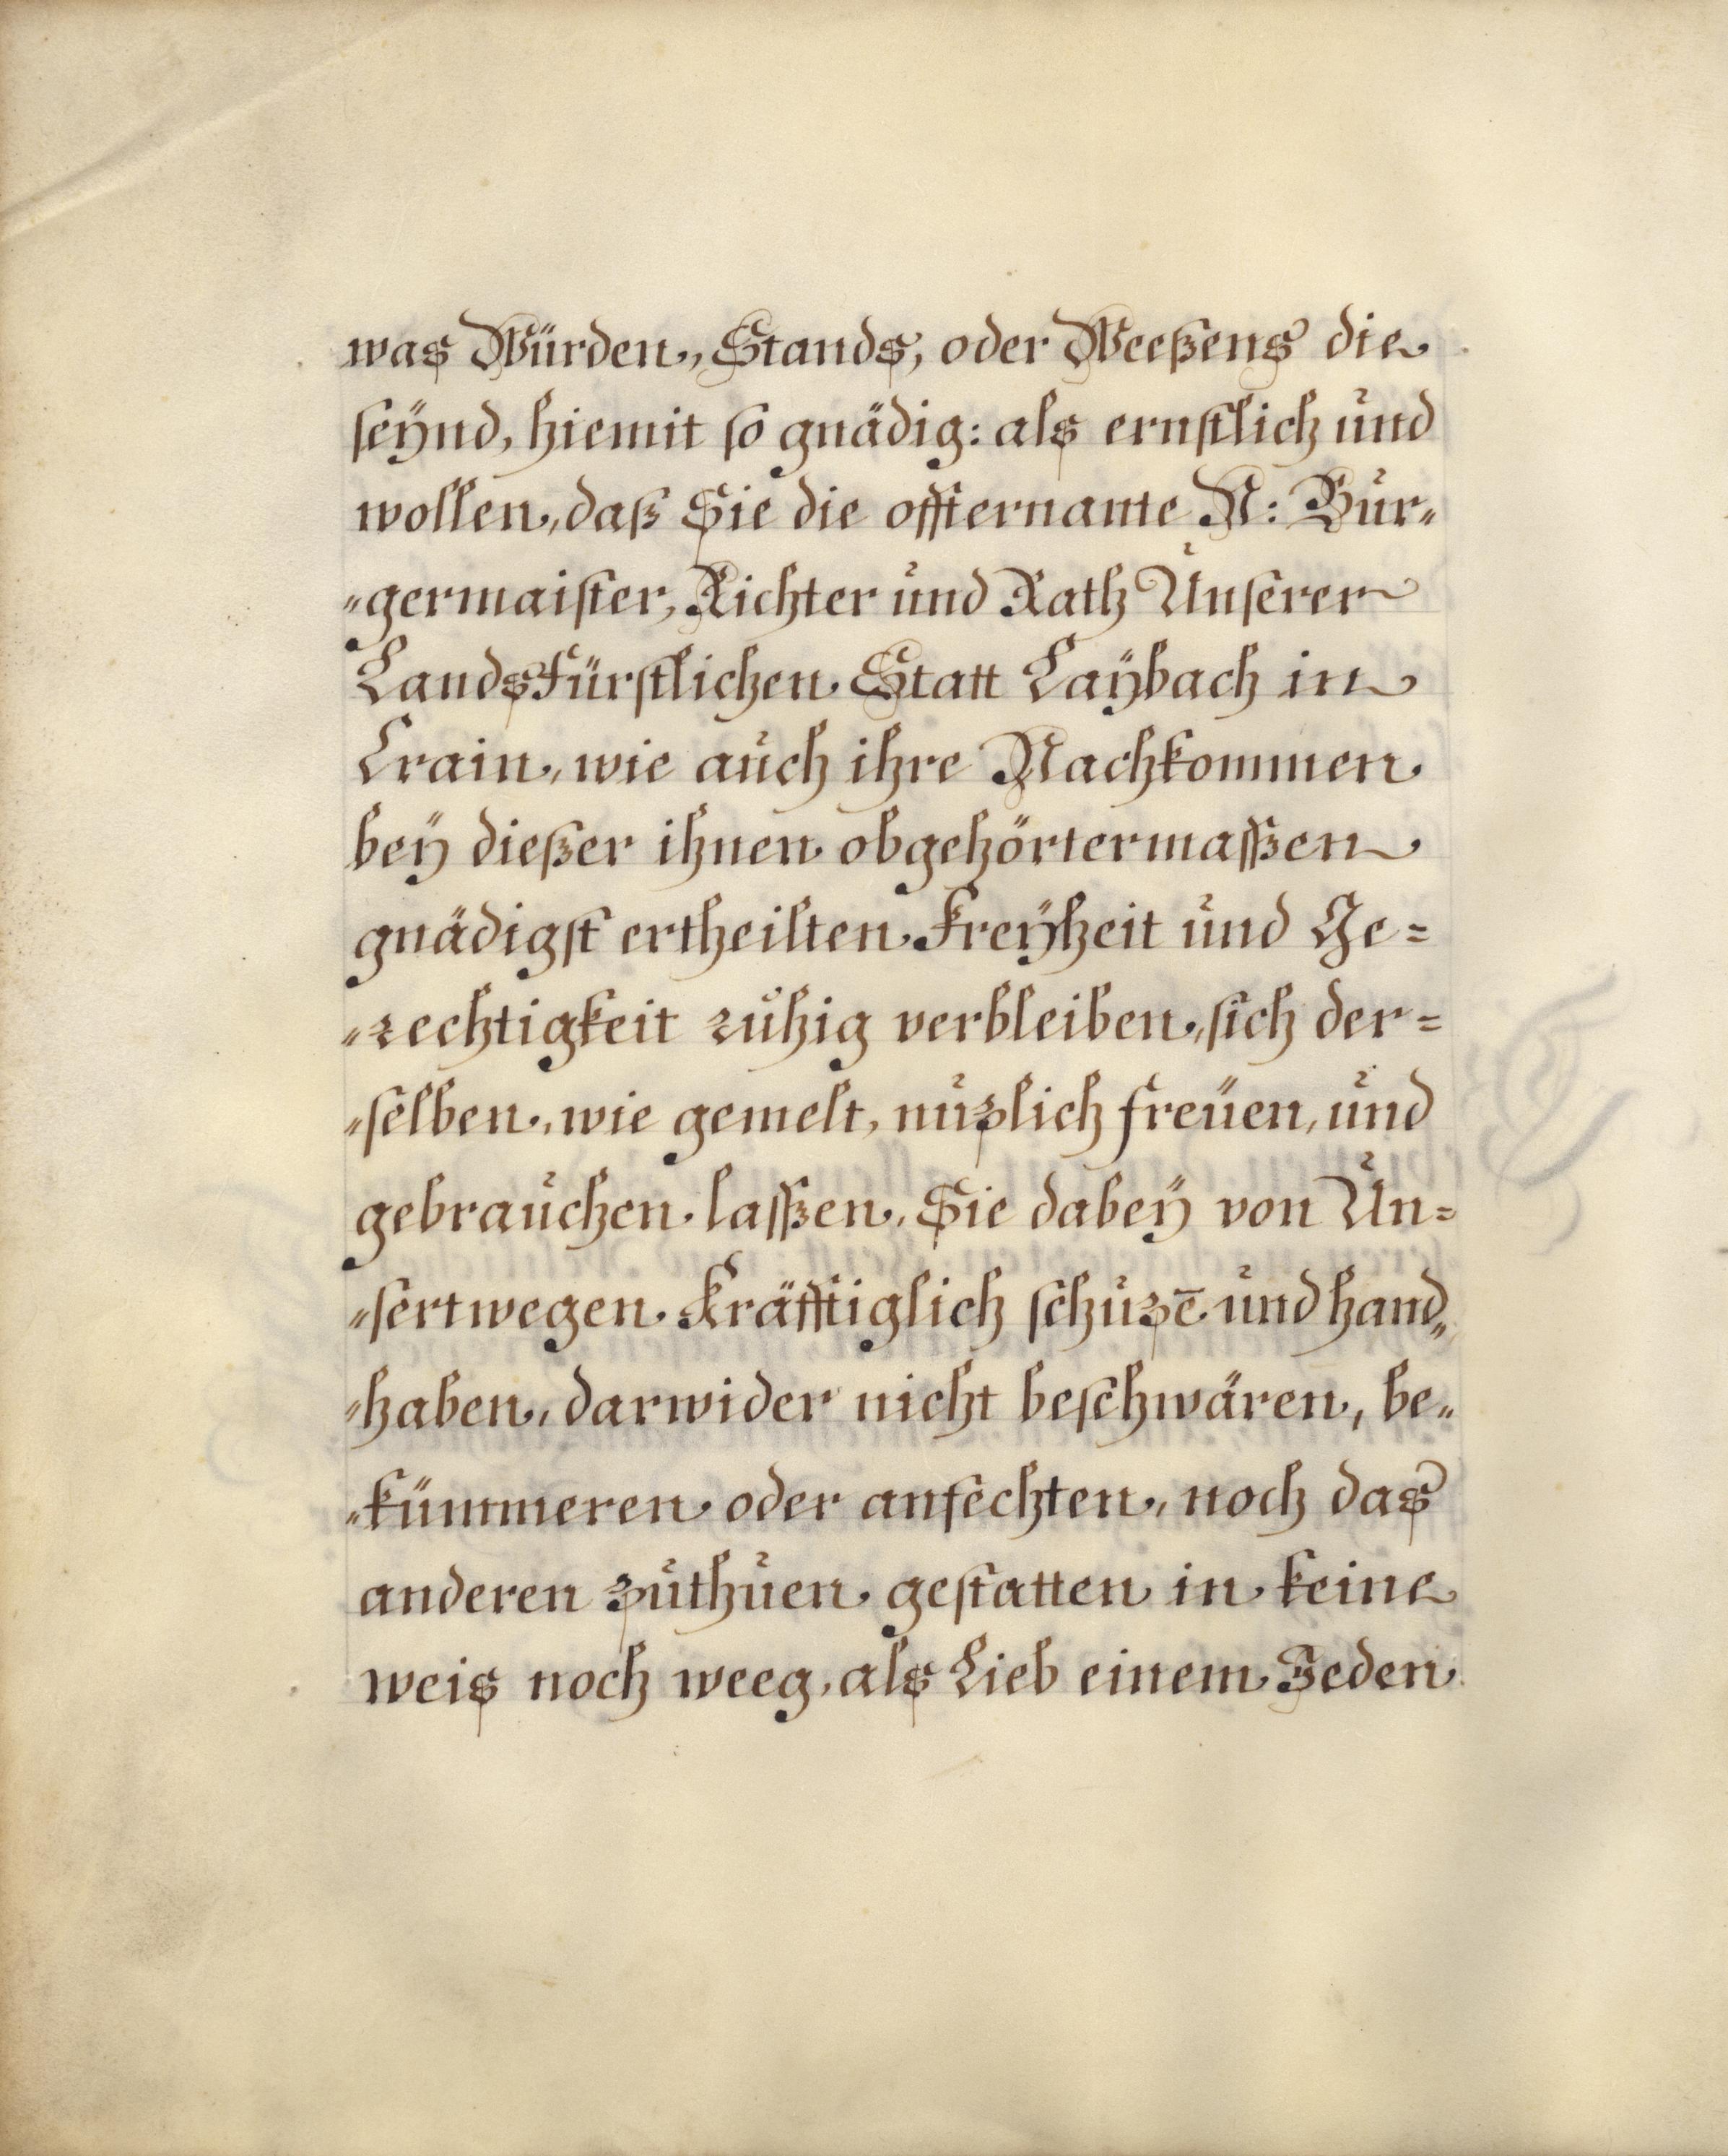 was Würden, Stands, oder Weeßens die
seÿnd, hiemit so gnädig: als ernstlich und
wollen, daß Sie die offternante N: Bur„
„germaister, Richter und Rath Unserer
LandsFürstlichen Statt Laÿbach in
Crain, wie auch ihre Nachkommen
beÿ dießer ihnen obgehörtermasßen
gnädigst ertheilten Freÿheit und Ge=
„rechtigkeit ruhig verbleiben, sich der=
„selben, wie gemelt, nuzlich freüen, und
gebrauchen lasßen, Sie dabeÿ von Un=
„sertwegen Kräfftiglich schuzē und hand„
„haben, darwider nicht beschwären, be„
„kümmeren oder anfechten, noch das
anderen zuthuen gestatten in keine
weis noch weeg, als Lieb einem Jeden